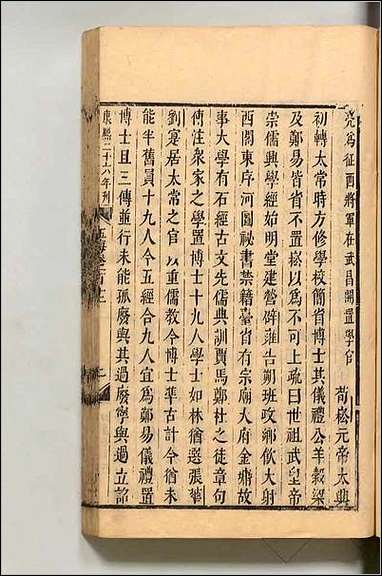 亮爲征西將軍在武昌開置學官　荀崧元帝太興
初轉太常時方修學校簡省博士其儀禮公羊穀梁
及鄭易皆省不置崧以爲不可上疏曰世祖武皇帝
崇儒興學經始明堂建營辟雍告朔班政鄉飲大射
西閣東序河圖祕書禁籍臺省有宗廟大府金鏞故
事大學有石經古文先儒典訓賈馬鄭杜之徒章句
傳注衆家之學置博士十九人學士如林猶選張華
劉寔居太常之官以重儒教今博士準古計今猶未
能半舊員十九人今五經合九人宜爲鄭易儀禮置
博士且三傳並行未能孤廢與其過廢寧與過立詔
康熙二十六年刊
玉海卷一百十二
二